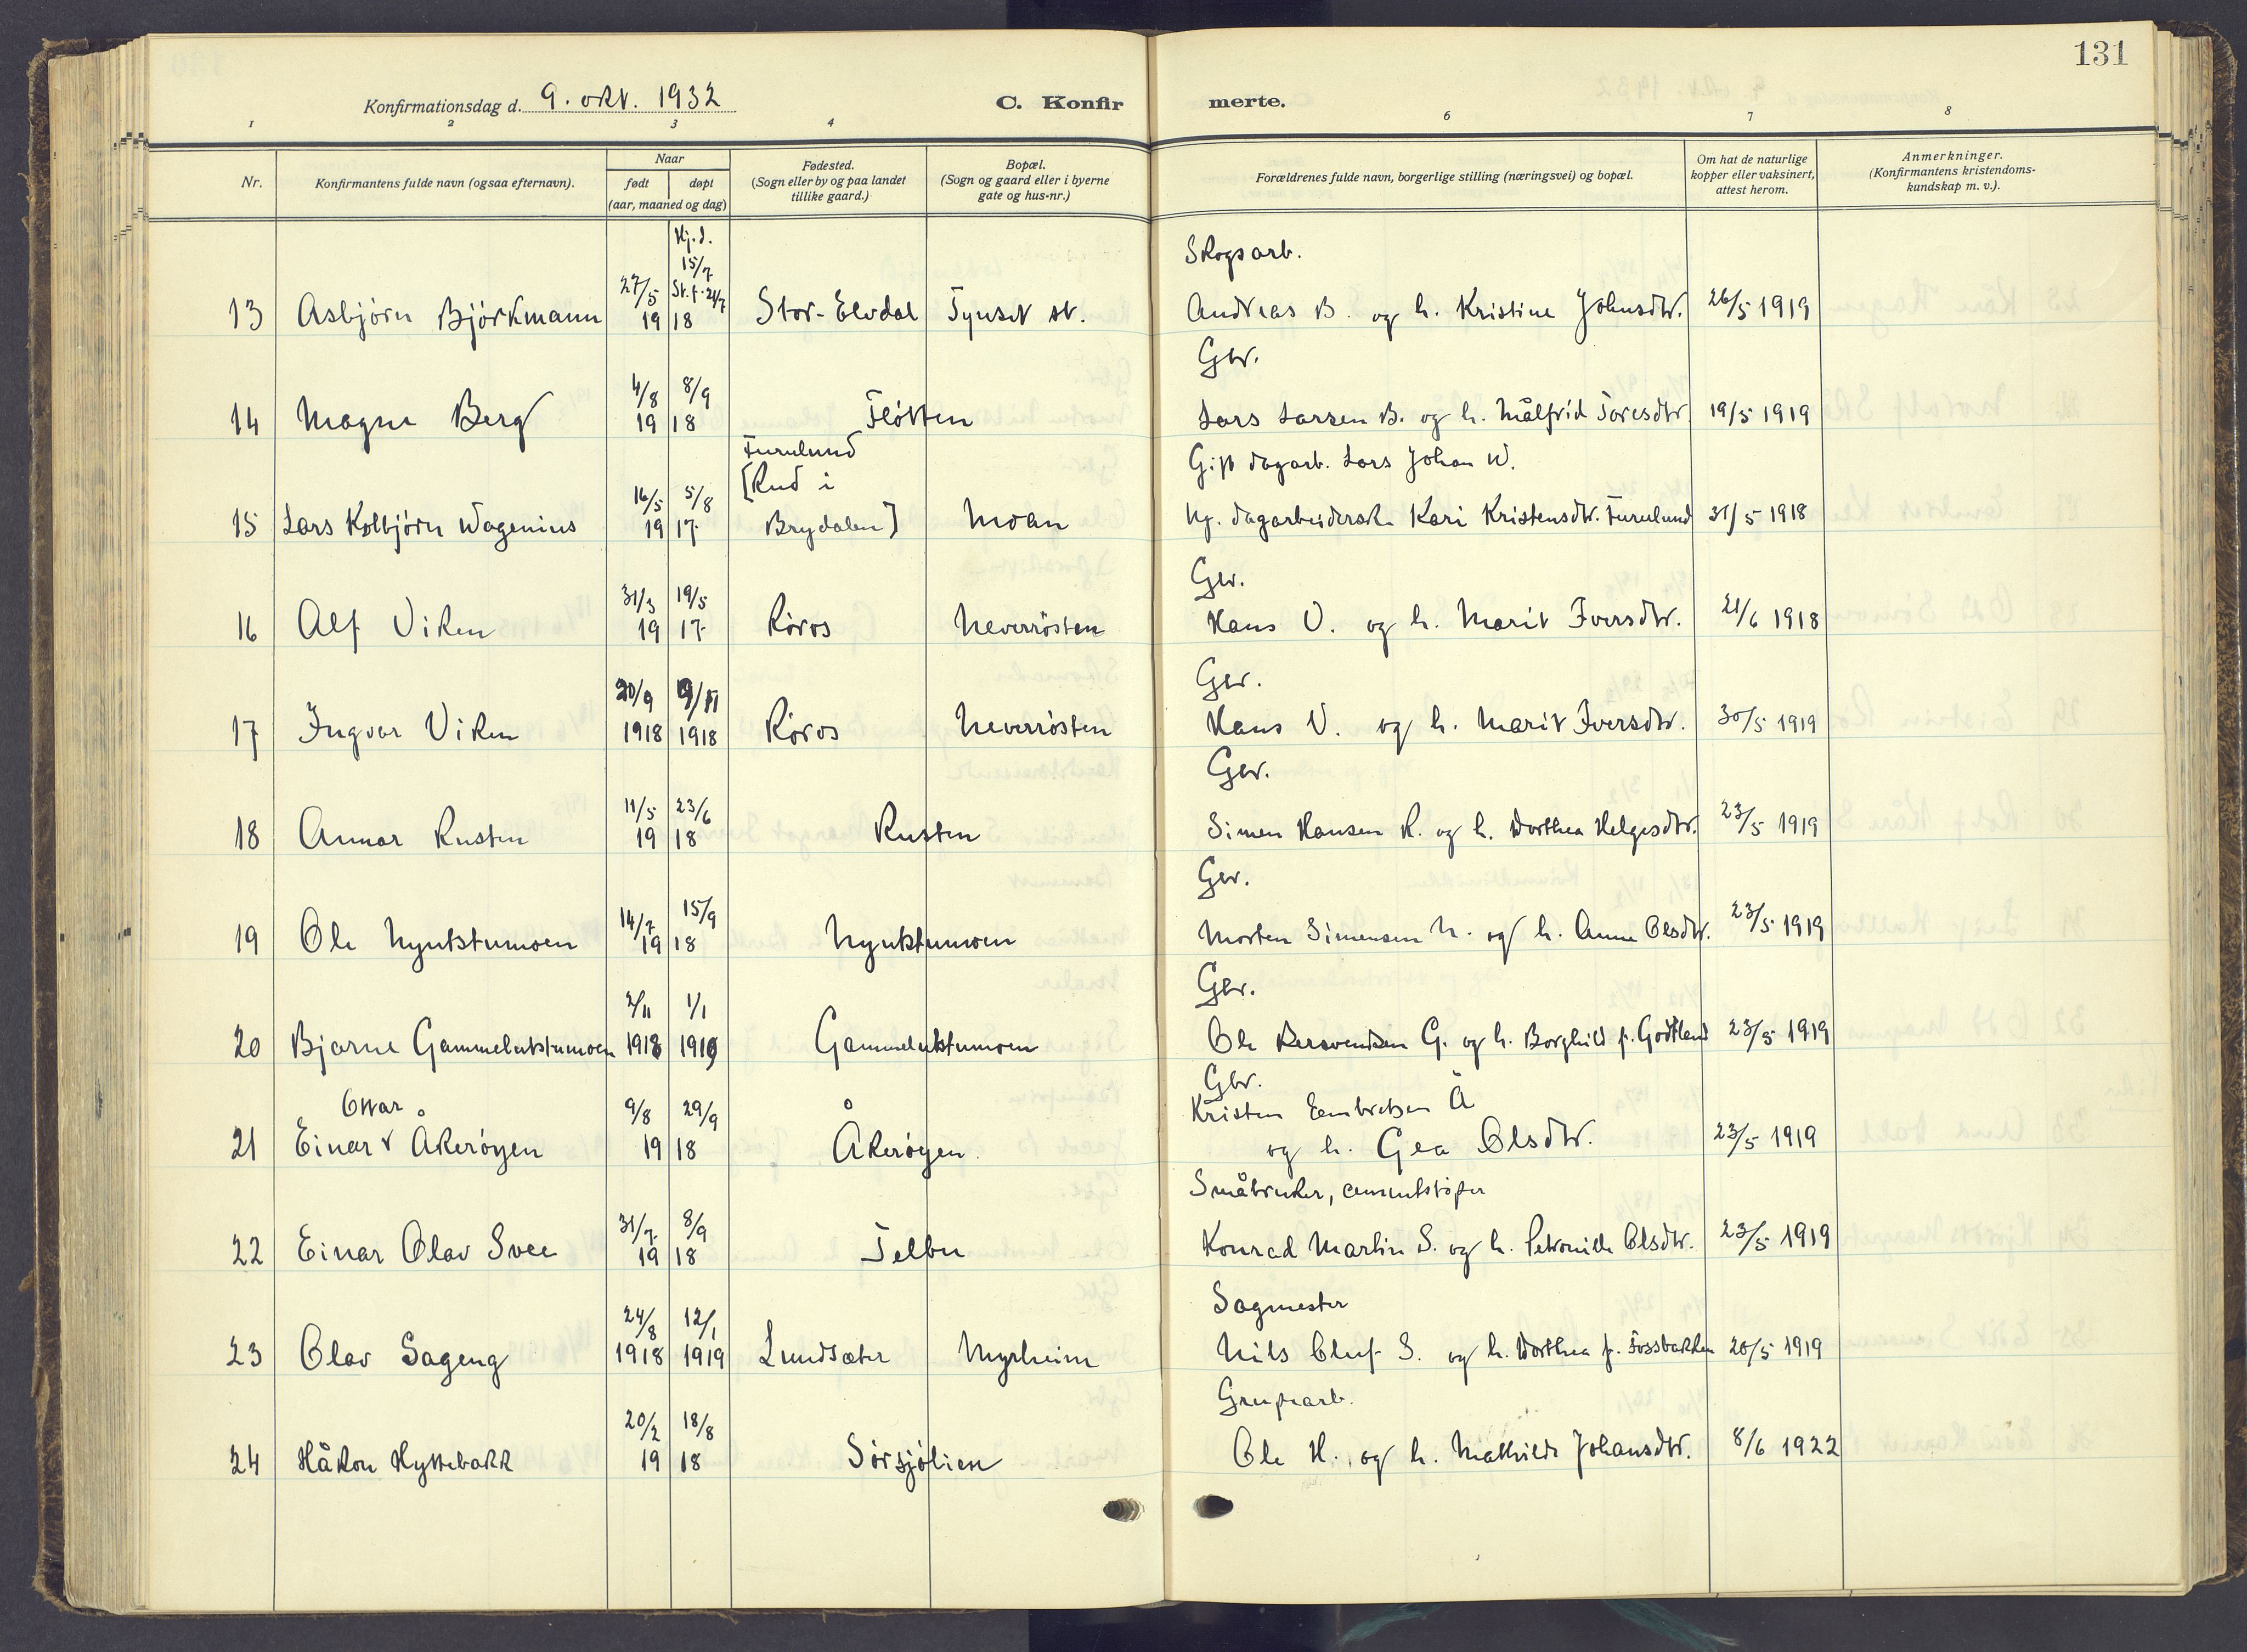 131
Konfirmationsdag d. 9. okt. 1932
C. Konfirmerte.
1 2 3 4 6 7 8
Nr.
Konfirmantens fulde navn (ogsaa efternavn).
Naar
født døpt
(aar, maaned og dag)
Fødested.
(Sogn eller by og paa landet
tillike gaard.)
Bopæl.
(Sogn og gaard eller i byerne
gate og hus-nr.)
Forældrenes fulde navn, borgerlige stilling (næringsvei) og bopæl.
Om hat de naturlige
kopper eller vaksinert,
attest herom.
Anmerkninger.
(Konfirmantens kristendoms-
kundskap m. v.).
Hj.d.
15/7
27/5 St.f. 21/7
Skogsarb.
13 Asbjørn Bjørkmann 19 18 Stor-Elvdal Tynset st. Andreas B. og h. Kristine Johnsdtr. 26/5 1919
4/8 8/9
Gbr.
14 Magne Berg 19 18 Fløtten Lars Larsen B. og h. Målfrid Toresdtr. 19/5 1919
Furulund
[Rud i
16/5 5/8
Gift dagarb. Lars Johan W.
15 Lars Kolbjørn Wagenius 19 17 Brydalen] Moan Ug. dagarbeidersk. Kari Kristensdtr. Furulund 31/5 1918
31/3 19/5
Gbr.
16 Alf Viken 19 17 Røros Neverrøsten Hans V. og h. Marit Iversdtr. 21/6 1918
20/9 9/11
Gbr.
17 Ingvar Viken 1918 1918 Røros Neverrøsten Hans V. og h. Marit Iversdtr. 30/5 1919
11/5 23/6
Gbr.
18 Annar Rusten 19 18 Rusten Simen Hansen R. og h. Dorthea Helgesdtr. 23/5 1919
14/7 15/9
Gbr.
19 Ole Nyutstumoen 19 18 Nyutstumoen Morten Simensen N. og h. Anne Olsdtr. 23/5 1919
2/11 1/1
Gbr.
20 Bjarne Gammelutstumoen 1918 1919 Gammelutstumoen Ole Bersvendsen G. og h. Borghild f. Godtland 23/5 1919
Ottar
9/8 29/9
Gbr.
Kristen Embretsen Å
21 Einar v Åkerøyen 19 18 Åkerøyen. og h. Gea Olsdtr. 23/5 1919
31/7 8/9
Småbruker, cementstøper
22 Einar Olav Svee 19 18 Telbu Konrad Martin S. og h. Petronille Olsdtr. 23/5 1919
24/8 12/1
Sagmester
23 Olav Sageng 1918 1919 Lundsæter Myrheim Nils Oluf S. og h. Dorthea f. Fossbakken 20/5 1919
20/2 18/8
Grupearb.
24 Håkon Hyttebakk 19 18 Sørsjølien Ole H. og h. Mathilde Johansdtr. 8/6 1922